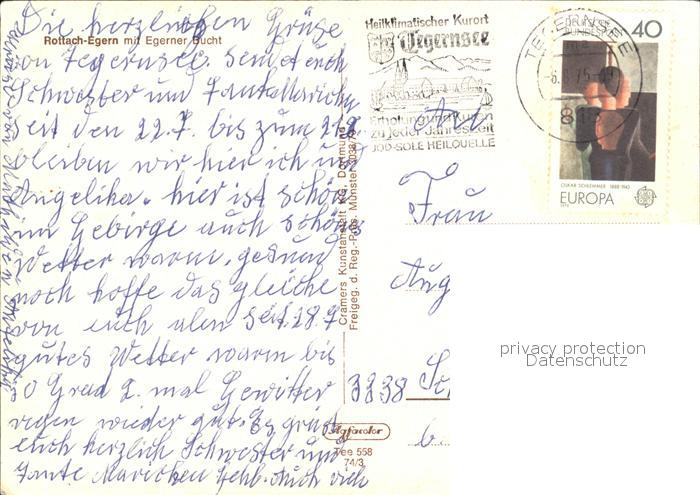 Die herzlichen Grüße
Rottach-Egern mit Egerner Bucht
von Tegernsee. sendet euch
Schwester und Tante Mariechen
seit den 22.7. bis zum
bleiben wir hier ich und
Angelika. hier ist schön
im Gebirge auch schönes
Wetter warm. gesund
noch hoffe das gleiche
von euch allen seit 18.7
gutes Wetter warm bis
30 Grad 2. mal Gewitter
regen wieder gut. Es grüßt
euch herzlich Schwester und
Tante Mariechen
Cramers Kunstanstalt KG, Dortmund
Freigeg. d. Reg.-Präs. Münster
Agfacolor
Tee 558
74/3
Heilklimatischer Kurort
Tegernsee
Erholung und Kuren
zu jeder Jahreszeit
JOD-SOLE HEILQUELLE
TEGERNSEE
DEUTSCHE
BUNDESPOST
40
OSKAR SCHLEMMER 1888-1943
EUROPA
CEPT
An
Frau
Aug
3338
6.
privacy protection
Datenschutz